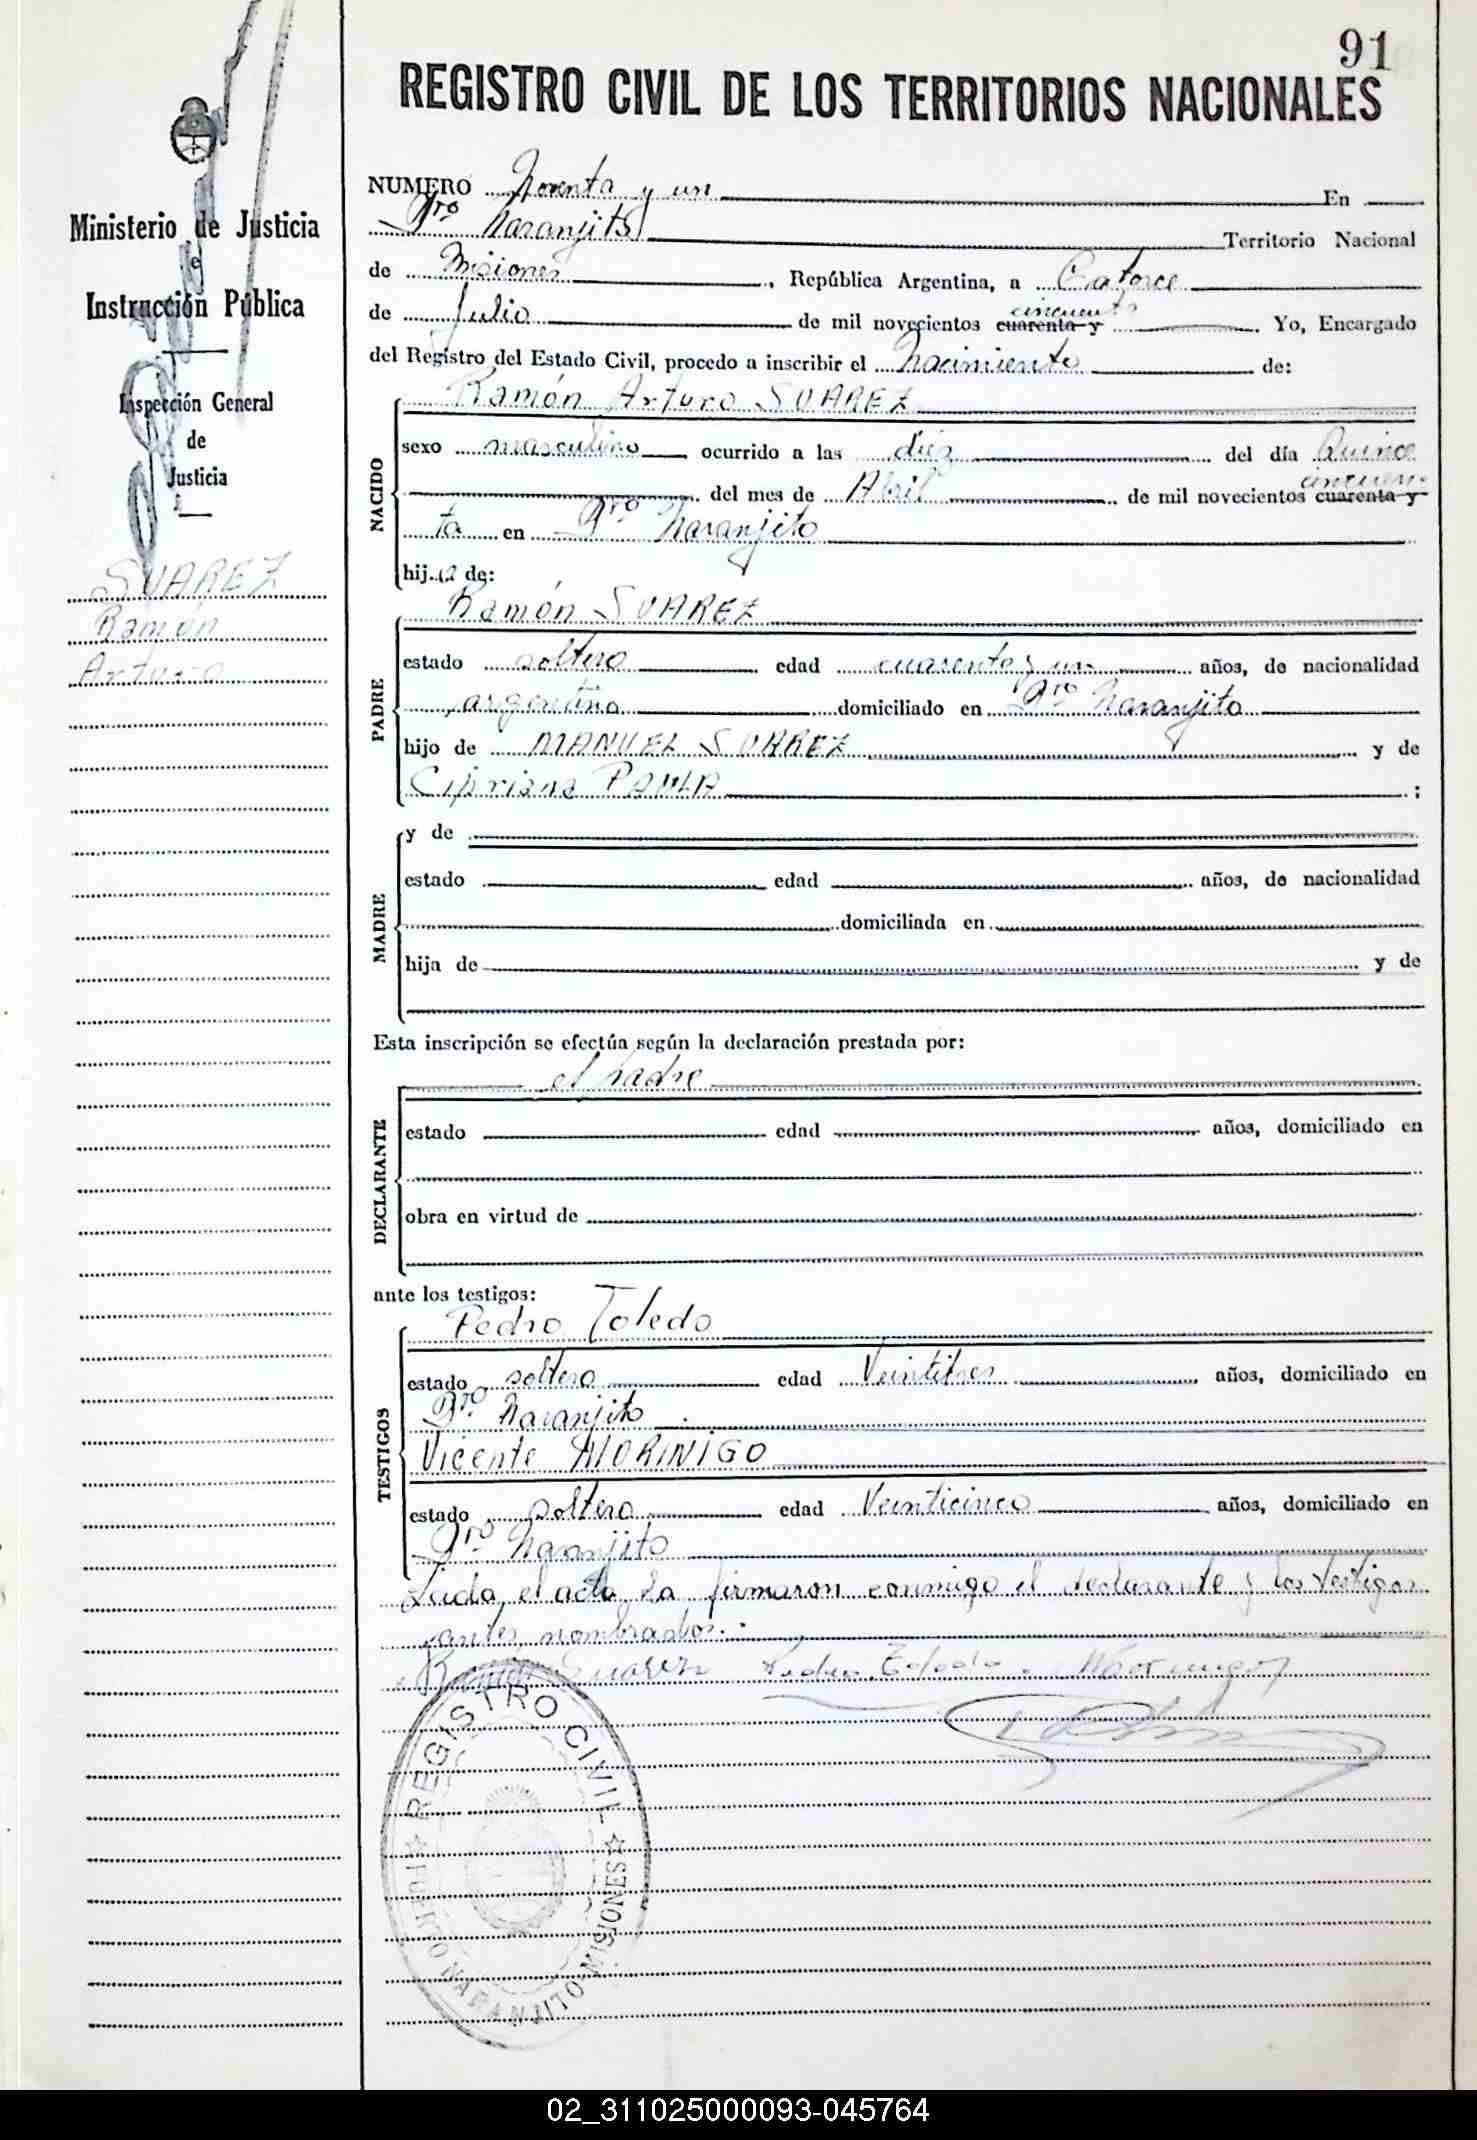 91
REGISTRO CIVIL DE LOS TERRITORIOS NACIONALES
Ministerio de Justicia
e
Instrucción Pública
Inspección General
de
Justicia
SUAREZ
Ramón
Arturo
NUMERO Noventa y un En
Pto Naranjito Territorio Nacional
de Misiones, República Argentina, a Catorce
de Julio de mil novecientos cuarenta y cincuenta. Yo, Encargado
del Registro del Estado Civil, procedo a inscribir el Nacimiento de:
NACIDO
Ramón Arturo SUAREZ
sexo masculino ocurrido a las diez del día Quince
del mes de Abril de mil novecientos cuarenta y cincuen-
ta en Pto Naranjito
hijo de:
PADRE
Ramón SUAREZ
estado soltero edad cuarenta y un años, de nacionalidad
argentino domiciliado en Pto Naranjito
hijo de MANUEL SUAREZ y de
Cipriana PAULA ;
MADRE
y de
estado edad años, de nacionalidad
domiciliada en
hija de y de
Esta inscripción se efectúa según la declaración prestada por:
DECLARANTE
el padre
estado edad años, domiciliado en
obra en virtud de
ante los testigos:
TESTIGOS
Pedro Toledo
estado soltero edad Veintitres años, domiciliado en
Pto. Naranjito
Vicente MORINIGO
estado soltero edad Veinticinco años, domiciliado en
Pto. Naranjito
Leida el acta la firmaron conmigo el declarante y los testigos
antes nombrados.-
Ramón Suarez Pedro Toledo Morinigo
REGISTRO CIVIL
PUERTO NARANJITO-MISIONES
02_311025000093-045764